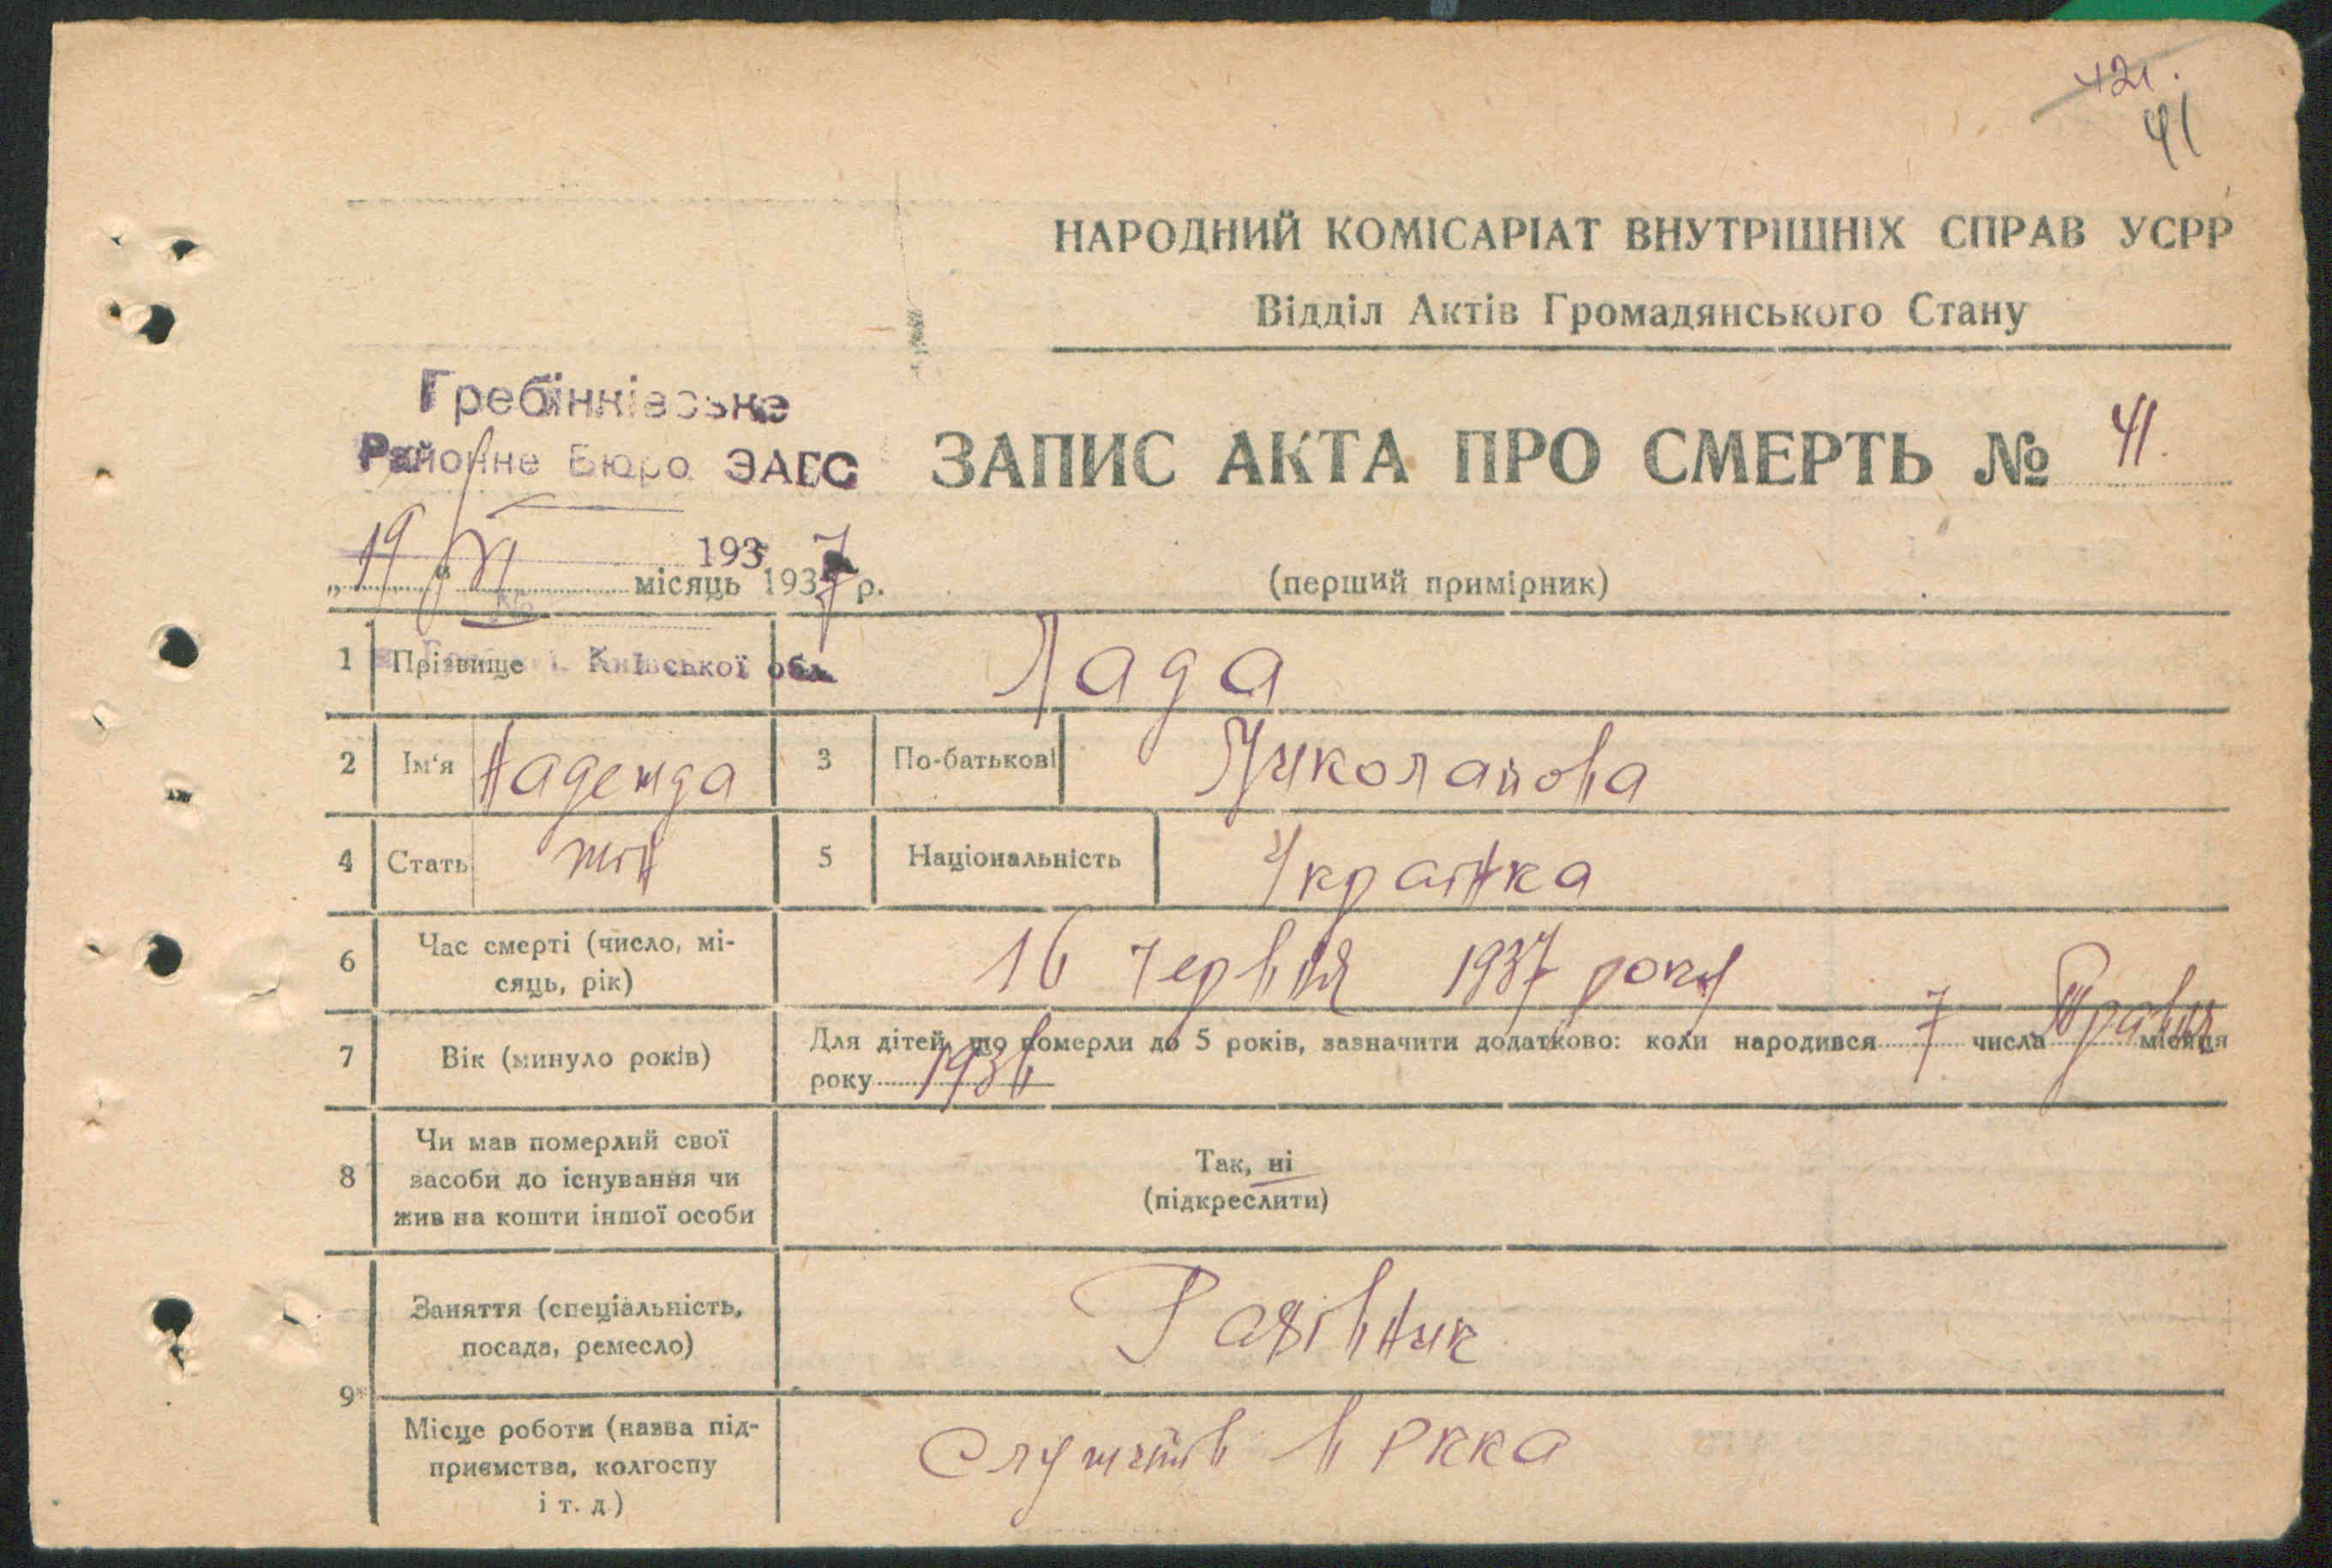 421.
41
НАРОДНИЙ КОМІСАРІАТ ВНУТРІШНІХ СПРАВ УСРР
Відділ Актів Громадянського Стану
Гребінківське
Районне Бюро ЗАГС
ЗАПИС АКТА ПРО СМЕРТЬ № 41.
193 7
„19“ VI місяць 1937 р.
(перший примірник)
1 Прізвище Лада
Київської обл
2 Ім'я Надежда 3 По-батькові Миколайова
4 Стать жін 5 Національність Українка
6 Час смерті (число, мі-
сяць, рік) 16 червня 1937 року
7 Вік (минуло років) Для дітей, що померли до 5 років, зазначити додатково: коли народився 7 числа Травня місяця
року 1936
8 Чи мав померлий свої
засоби до існування чи
жив на кошти іншої особи
Так, ні
(підкреслити)
9 Заняття (спеціальність,
посада, ремесло)
Місце роботи (назва під-
приємства, колгоспу
і т. д.)
в РККА